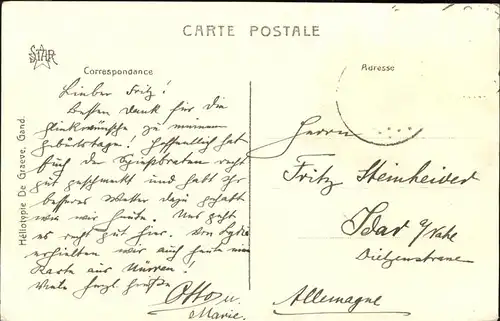 CARTE POSTALE
STAR
Correspondance
Adresse
Lieber Fritz!
Besten Dank für die
Glückwünsche zu meinem
Geburtstage! Hoffentlich hat
Euch der Spiessbraten recht
gut geschmeckt und habt Ihr
besseres Wetter dazu gehabt
wie wir heute. Uns geht
es recht gut hier. Von
erhielten wir auch heute eine
Karte aus
Viele herzl. Grüße
Otto u.
Marie.
Herrn
Fritz Steinheiver
Idar a/Nahe
Dietzenstrasse
Allemagne
Héliotypie De Graeve, Gand.